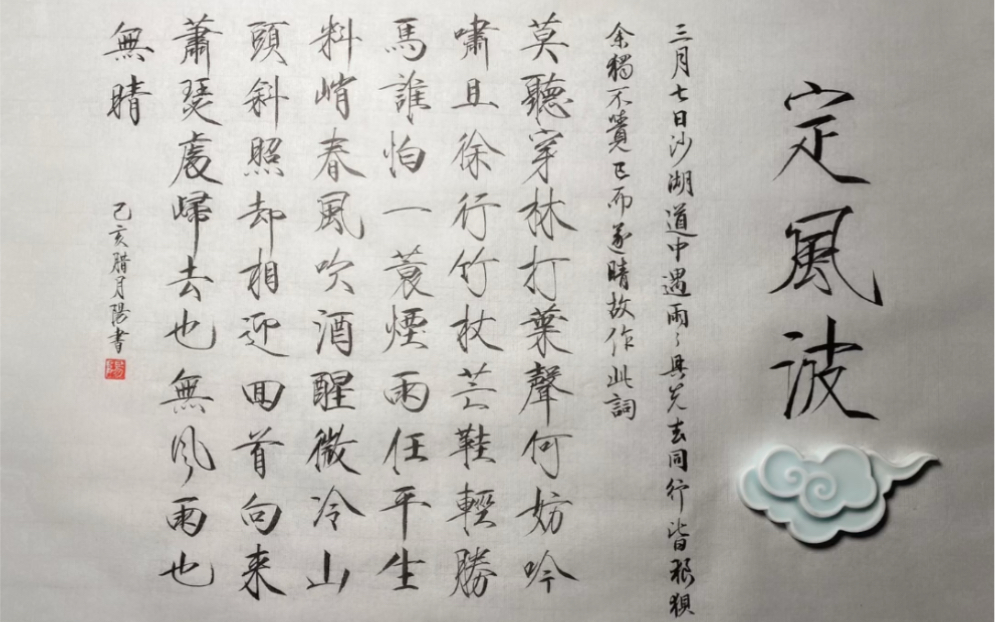 定風波
三月七日沙湖道中遇雨〻具先去同行皆狼狽
余獨不覺已而遂晴故作此詞
莫聽穿林打葉聲何妨吟
嘯且徐行竹杖芒鞋輕勝
馬誰怕一蓑煙雨任平生
料峭春風吹酒醒微冷山
頭斜照却相迎回首向来
蕭瑟處歸去也無風雨也
無晴
己亥腊月陽書